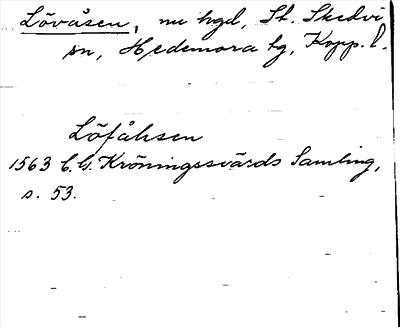 Lövåsen, nu hgd, St. Skedvi
sn, Hedemora tg, Kopp. l.
Löfåhsen
1563 C. G. Kröningssvärds Samling,
s. 53.